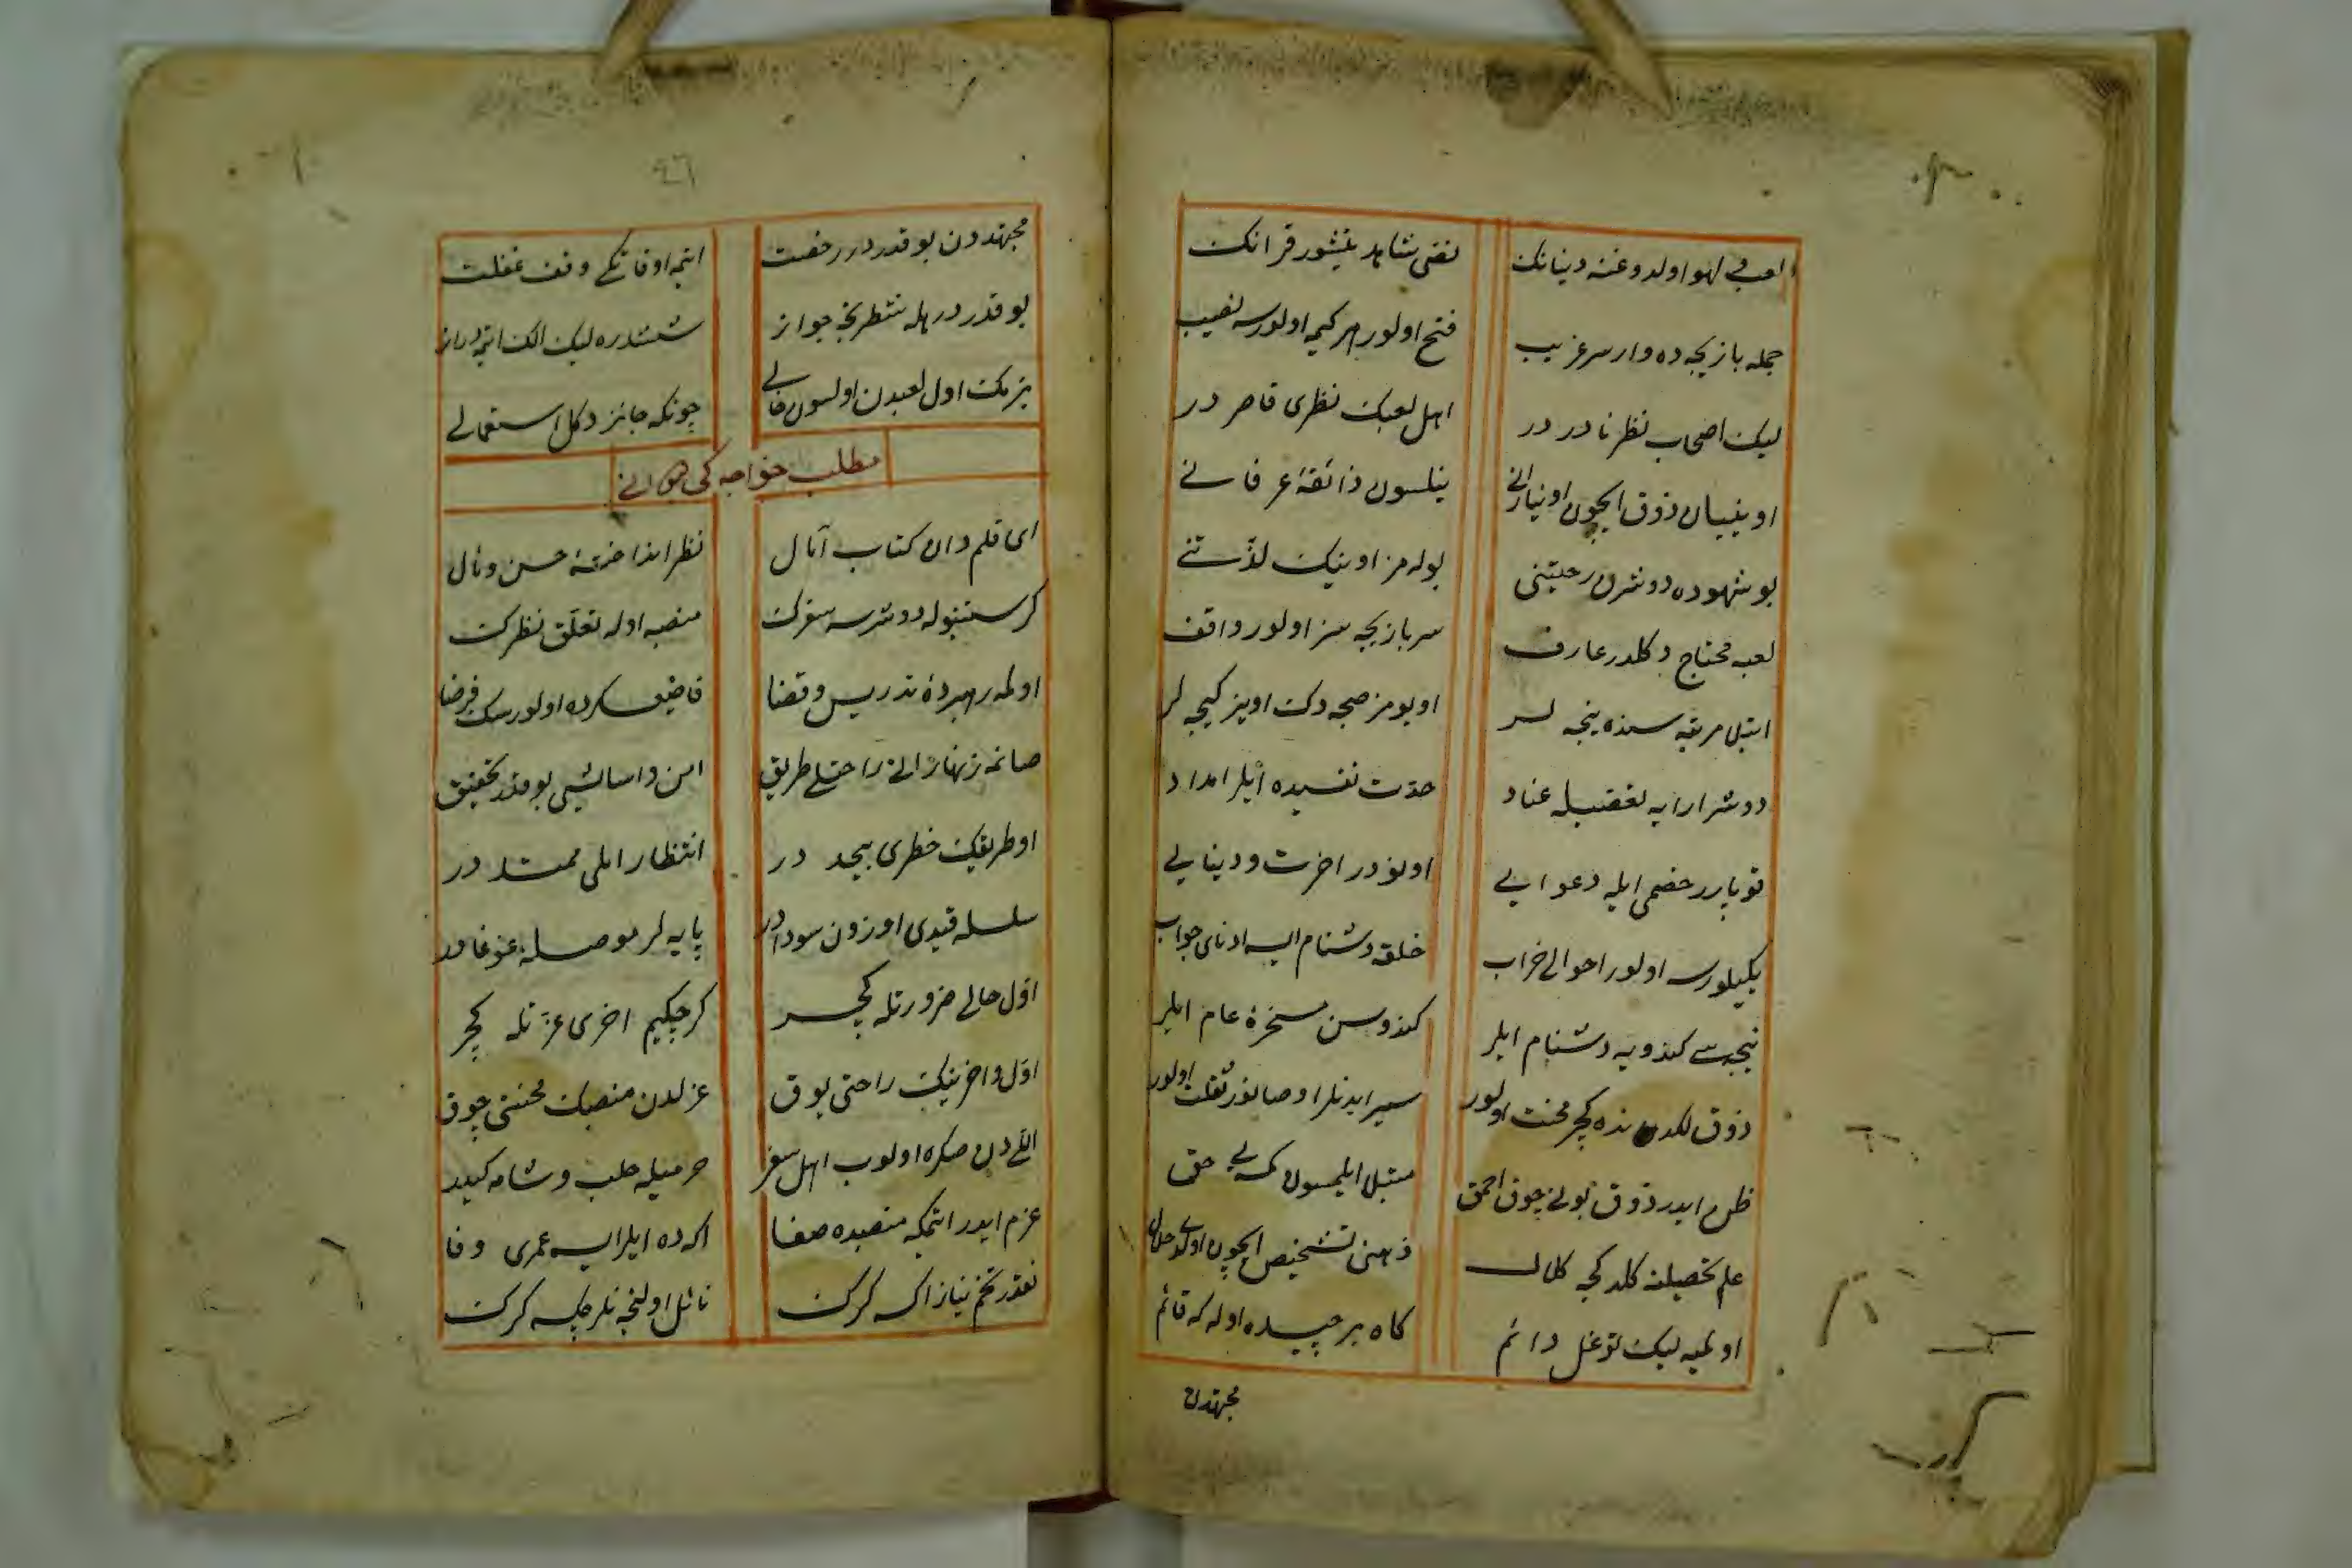 لعبی لهو اولدوغنه دنیانک نفی شاهد یتیشور قرآنک
جمله بازیچه ده وار سر غریب فتح اولور هر کیمه اولورسه نصیب
لیک اصحاب نظر نادر در اهل لعبک نظری قاصر در
اوینیان ذوق ایچون اوینارانی بیلسون ذائقهٔ عرفانی
بو شهوده دوشرن رحیتنی بوله مز اوینیک لذتنی
لعبه محتاج دکلدر عارف سر بازیچه سز اولور واقف
ابتلی مرتبه سنده نیجه لر اویومز صبحه دک اوینر کیجه لر
دوشر ارایه تغضبله عناد حدت نفسیده ایلر امداد
قوپارر خصمی ایله دعوایی اونودر اخرت و دنیایی
یکیلورسه اولور احوالی خراب خلقه دشنام ایسه ادنای جواب
نیجه سی کندویه دشنام ایلر کندوسن مسخرهٔ عام ایلر
ذوق لکدن بنده کچر محنت اولور سیر ایدنلر اوصانور ثقلت اولور
ظن ایدر ذوق بونی چوق احمق مبتلی ایلمسون کمسه یی حق
علم تحصیلنه کلدکجه کلال ذهنی تشخیص ایچون اولدی حلال
اولمیه لیک توغل دائم کاه بر چیده اوله که قائم
مجتهدن
٤٦
مجتهددن بو قدردر رخصت ایتمه اوقاتکی وقف غفلت
بو قدردر هله شطرنجه جواز ششدره لیک الک ایتمه دراز
بزمک اول لعبدن اولسون خالی چونکه جائز دکل استعمالی
مطلب خواجه کی دیوانی
ای قلم دان کتاب آمال نظر انداختهٔ حسن ومال
کر ستنبوله دوشرسه سفرک منصبه اوله تعلق نظرک
اولمه رهبردهٔ تدریس و قضا قاضیعسکرده اولورسک فرضا
صانمه زنهار انی راحتلی طریق امن و اسایشی یوقدر تحقیق
او طریقک خطری بیحد در انتظار املی ممتد در
سلسله قیدی اوزون سودادر پایه لر موصلهٔ غوغادر
اول حالی ضرورتله کچر کرچکیم اخری عزتله کچر
اول و اخرینک راحتی یوق عزلدن منصبک محنتی چوق
اللی دن صکره اولوب اهل سفر حرمیله حلب و شامه کیدر
عزم ایدر ایتمکه منصبده صفا اکه ده ایلر ایسه عمری وفا
نقدر تخم نیاز اکسه کرک نائل اولنجه نلر چکسه کرک